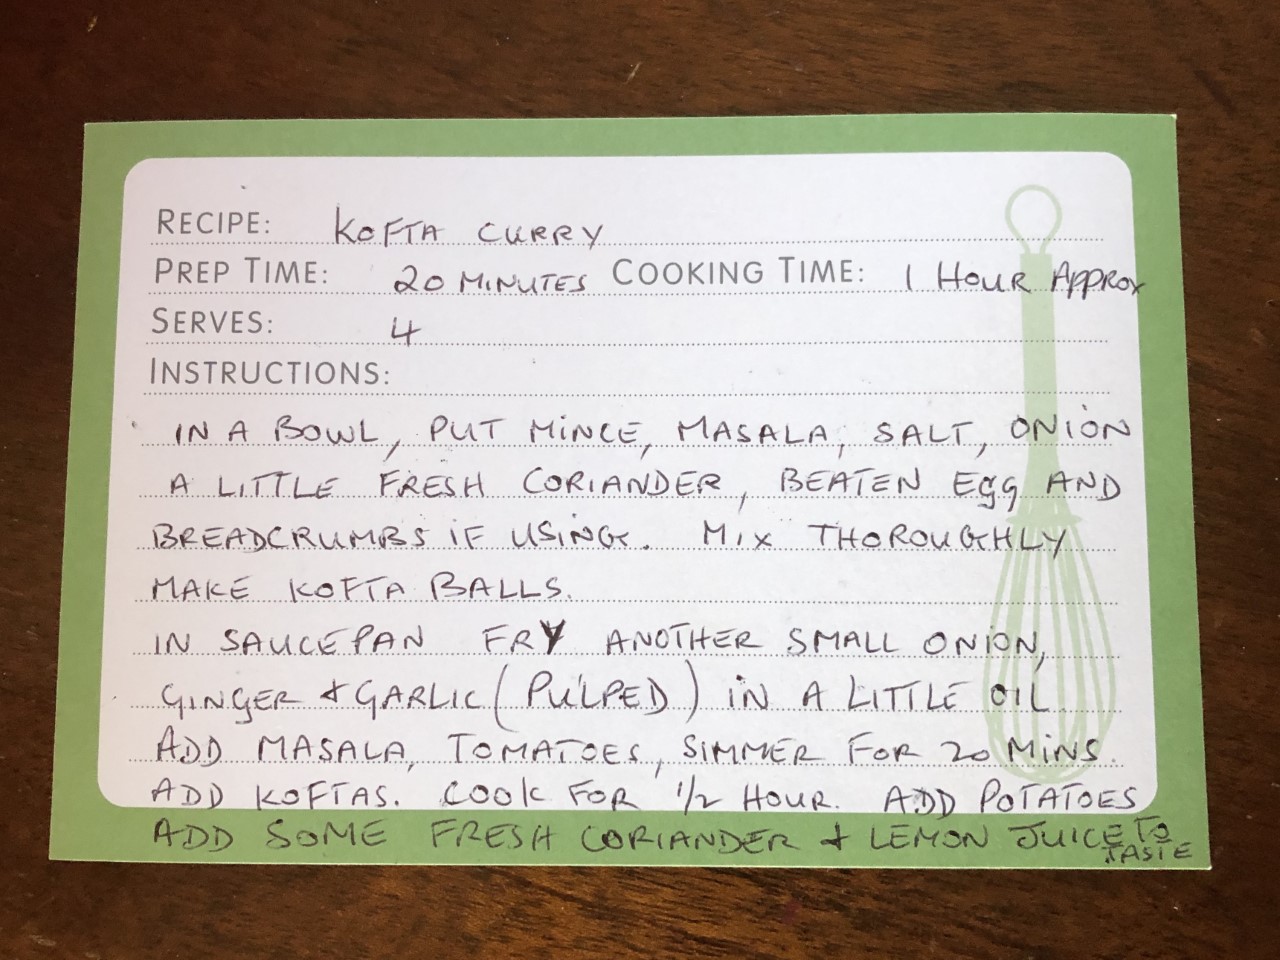 RECIPE: KOFTA CURRY
PREP TIME: 20 MINUTES COOKING TIME: 1 HOUR APPROX
SERVES: 4
INSTRUCTIONS:
IN A BOWL, PUT MINCE, MASALA, SALT, ONION
A LITTLE FRESH CORIANDER, BEATEN EGG AND
BREADCRUMBS IF USING. MIX THOROUGHLY
MAKE KOFTA BALLS.
IN SAUCEPAN FRY ANOTHER SMALL ONION,
GINGER & GARLIC (PULPED) IN A LITTLE OIL
ADD MASALA, TOMATOES, SIMMER FOR 20 MINS.
ADD KOFTAS. COOK FOR 1/2 HOUR. ADD POTATOES
ADD SOME FRESH CORIANDER & LEMON JUICE TO
TASTE